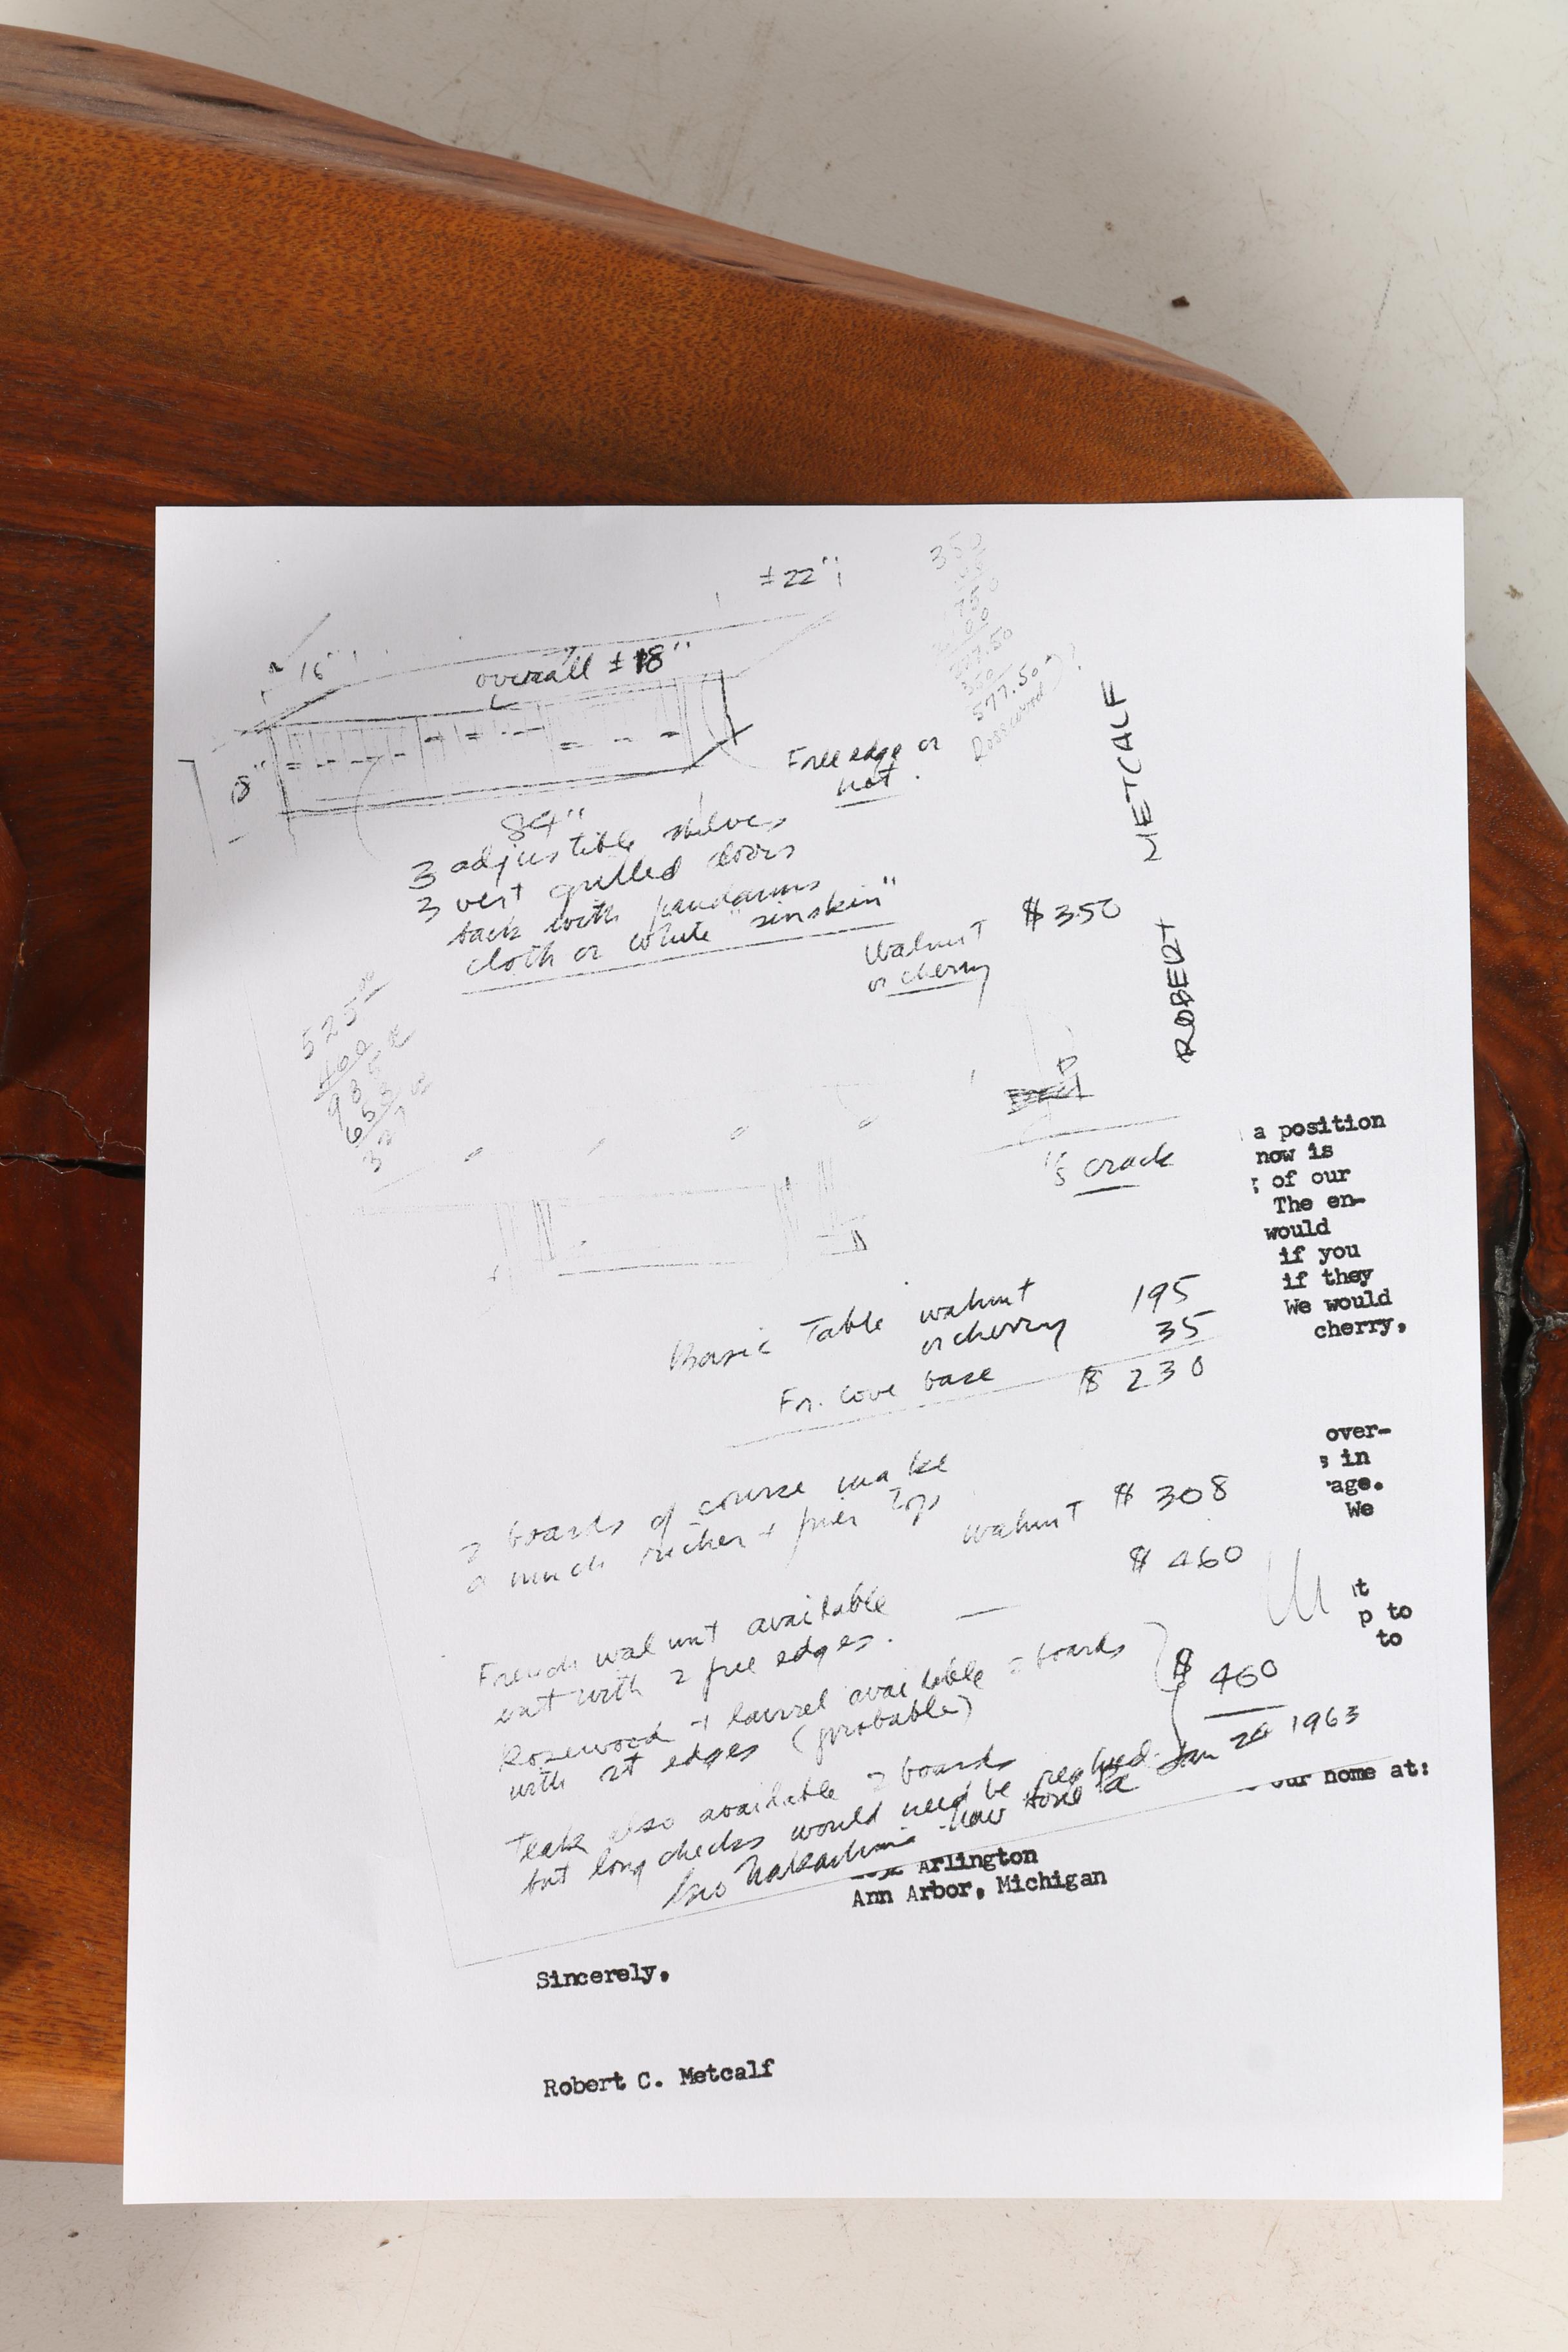 ± 22"
16"
overall ± 18"
18"
84"
Free edge or
not.
350
577.50
Rosewood
ROBERT METCALF
3 adjustible shelves
3 vert grilled doors
back with pandanus
cloth or white "sinskin"
Walnut $350
or cherry
525
⅛ crack
a position
now is
of our
The en-
would
if you
if they
We would
cherry,
Basic Table walnut 195
or cherry 35
Fr. cove base $ 230
over-
in
age.
We
2 boards of course make
a much richer + finer top
walnut $ 308
$ 460
French walnut available
not with 2 free edges.
to
to
Rosewood + laurel available 2 boards
with edges (probable)
$ 460
Teak also available 2 boards
but long checks would need be
Geo Nakashima New Hope Pa Jan 20 1963
our home at:
Arlington
Ann Arbor, Michigan
Sincerely,
Robert C. Metcalf